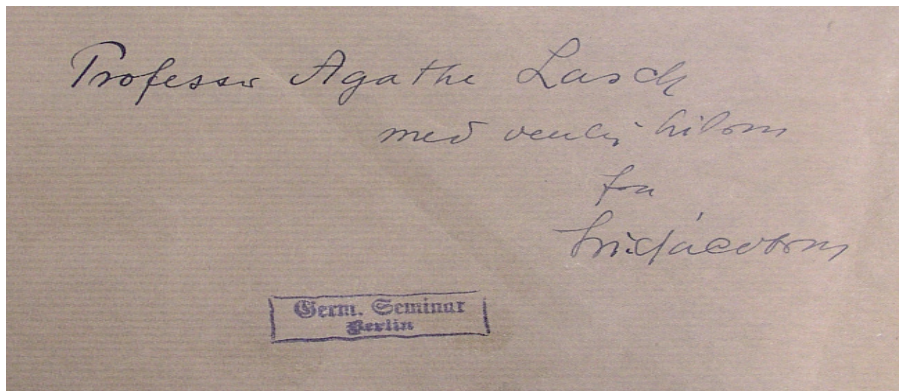 Professor Agathe Lasch
med venlig hilsen
fra
Lis Jacobsen
Germ. Seminar
Berlin